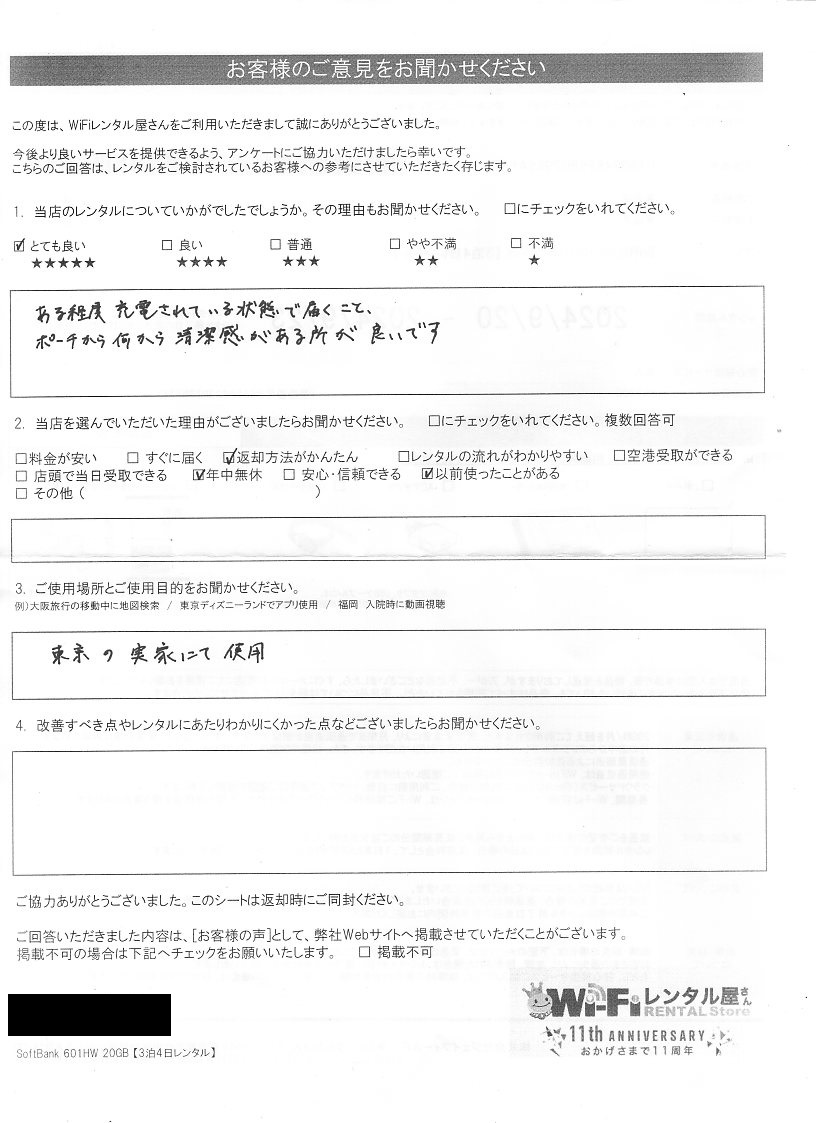 お客様のご意見をお聞かせください
この度は、WiFiレンタル屋さんをご利用いただきまして誠にありがとうございました。
今後より良いサービスを提供できるよう、アンケートにご協力いただけましたら幸いです。
こちらのご回答は、レンタルをご検討されているお客様への参考にさせていただきたく存じます。
1. 当店のレンタルについていかがでしたでしょうか。その理由もお聞かせください。 □にチェックをいれてください。
☑ とても良い □ 良い □ 普通 □ やや不満 □ 不満
★★★★★ ★★★★ ★★★ ★★ ★
ある程度 充電されている状態で届くこと、
ポーチから何から清潔感がある所が良いです
2. 当店を選んでいただいた理由がございましたらお聞かせください。 □にチェックをいれてください。複数回答可
□料金が安い □ すぐに届く ☑返却方法がかんたん □レンタルの流れがわかりやすい □空港受取ができる
□ 店頭で当日受取できる ☑年中無休 □ 安心・信頼できる ☑以前使ったことがある
□ その他 ( )
3. ご使用場所とご使用目的をお聞かせください。
例)大阪旅行の移動中に地図検索 / 東京ディズニーランドでアプリ使用 / 福岡 入院時に動画視聴
東京の実家にて使用
4. 改善すべき点やレンタルにあたりわかりにくかった点などございましたらお聞かせください。
ご協力ありがとうございました。このシートは返却時にご同封ください。
ご回答いただきました内容は、[お客様の声]として、弊社Webサイトへ掲載させていただくことがございます。
掲載不可の場合は下記へチェックをお願いいたします。 □ 掲載不可
Wi-Fiレンタル屋さん
RENTAL Store
11th ANNIVERSARY
おかげさまで11周年
SoftBank 601HW 20GB【3泊4日レンタル】